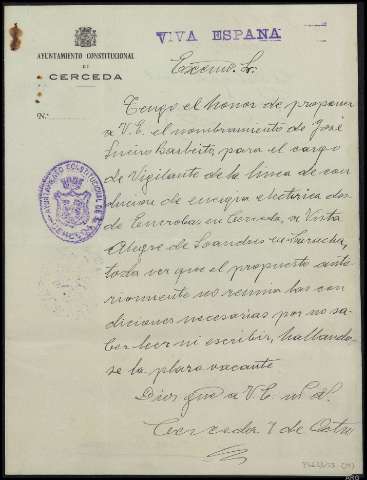 VIVA ESPAÑA
AYUNTAMIENTO CONSTITUCIONAL
DE
CERCEDA
Excmo. Sr.
N.º
Tengo el honor de proponer
a V.E. el nombramiento de José
Barbeito, para el cargo
de Vigilante de la linea de con
duccion de energia electrica des
de Encrobas en Cerceda, a Vista
Alegre de Soandres en Laracha,
toda vez que el propuesto ante
riormente no reunia las con
diciones necesarias por no sa
ber leer ni escribir, hallando-
se la plaza vacante
Dios gue a V.E. m. a.
Cerceda 1 de Octre
AYUNTAMIENTO CONSTITUCIONAL DE CERCEDA